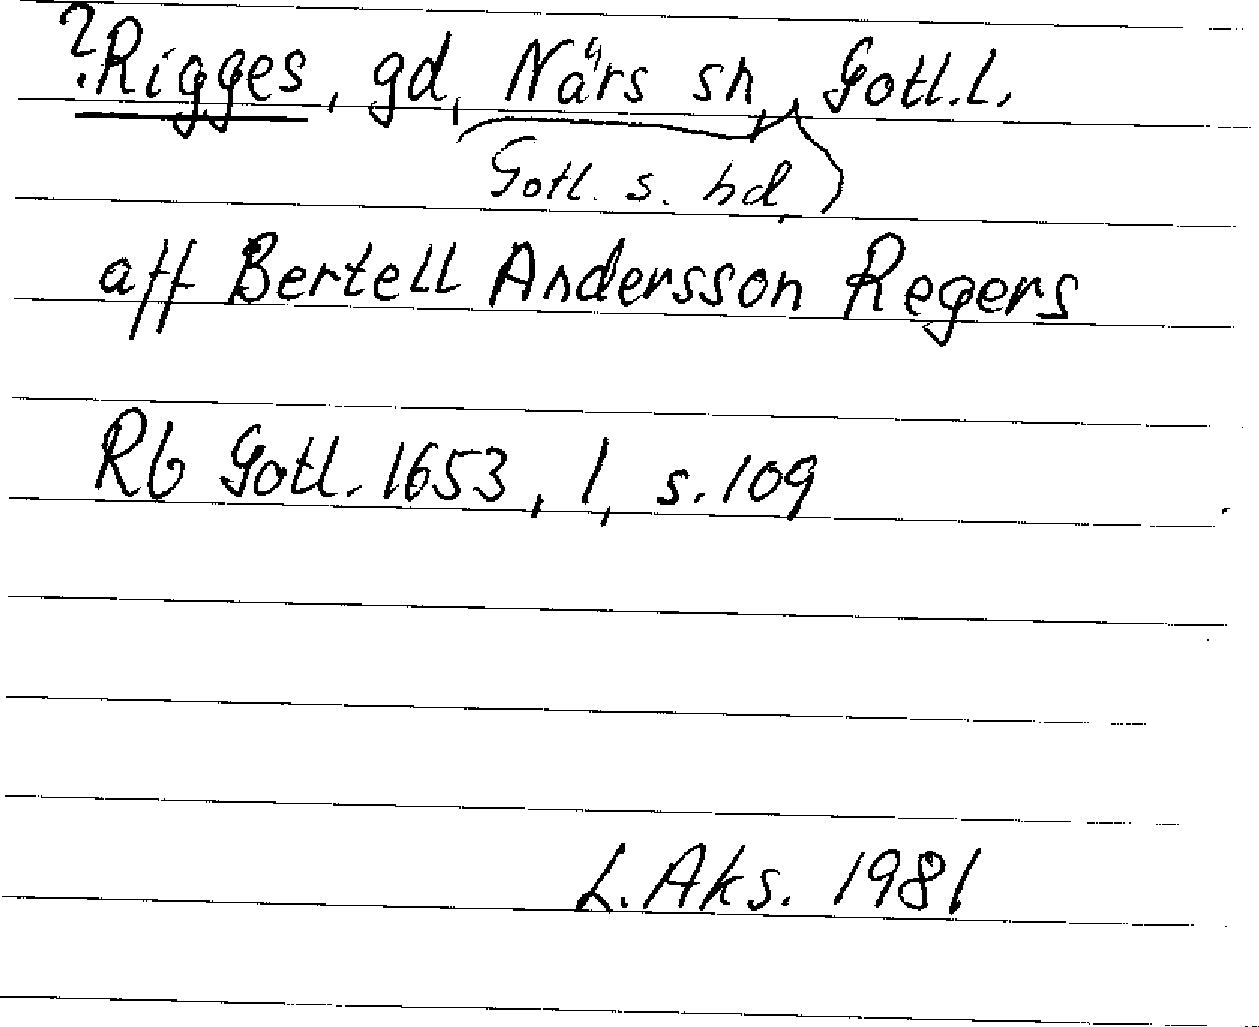 ?Rigges, gd, Närs sn, Gotl. l.
Gotl. s. hd,
aff Bertell Andersson Regers
Rb Gotl. 1653, 1, s. 109
L. Aks. 1981